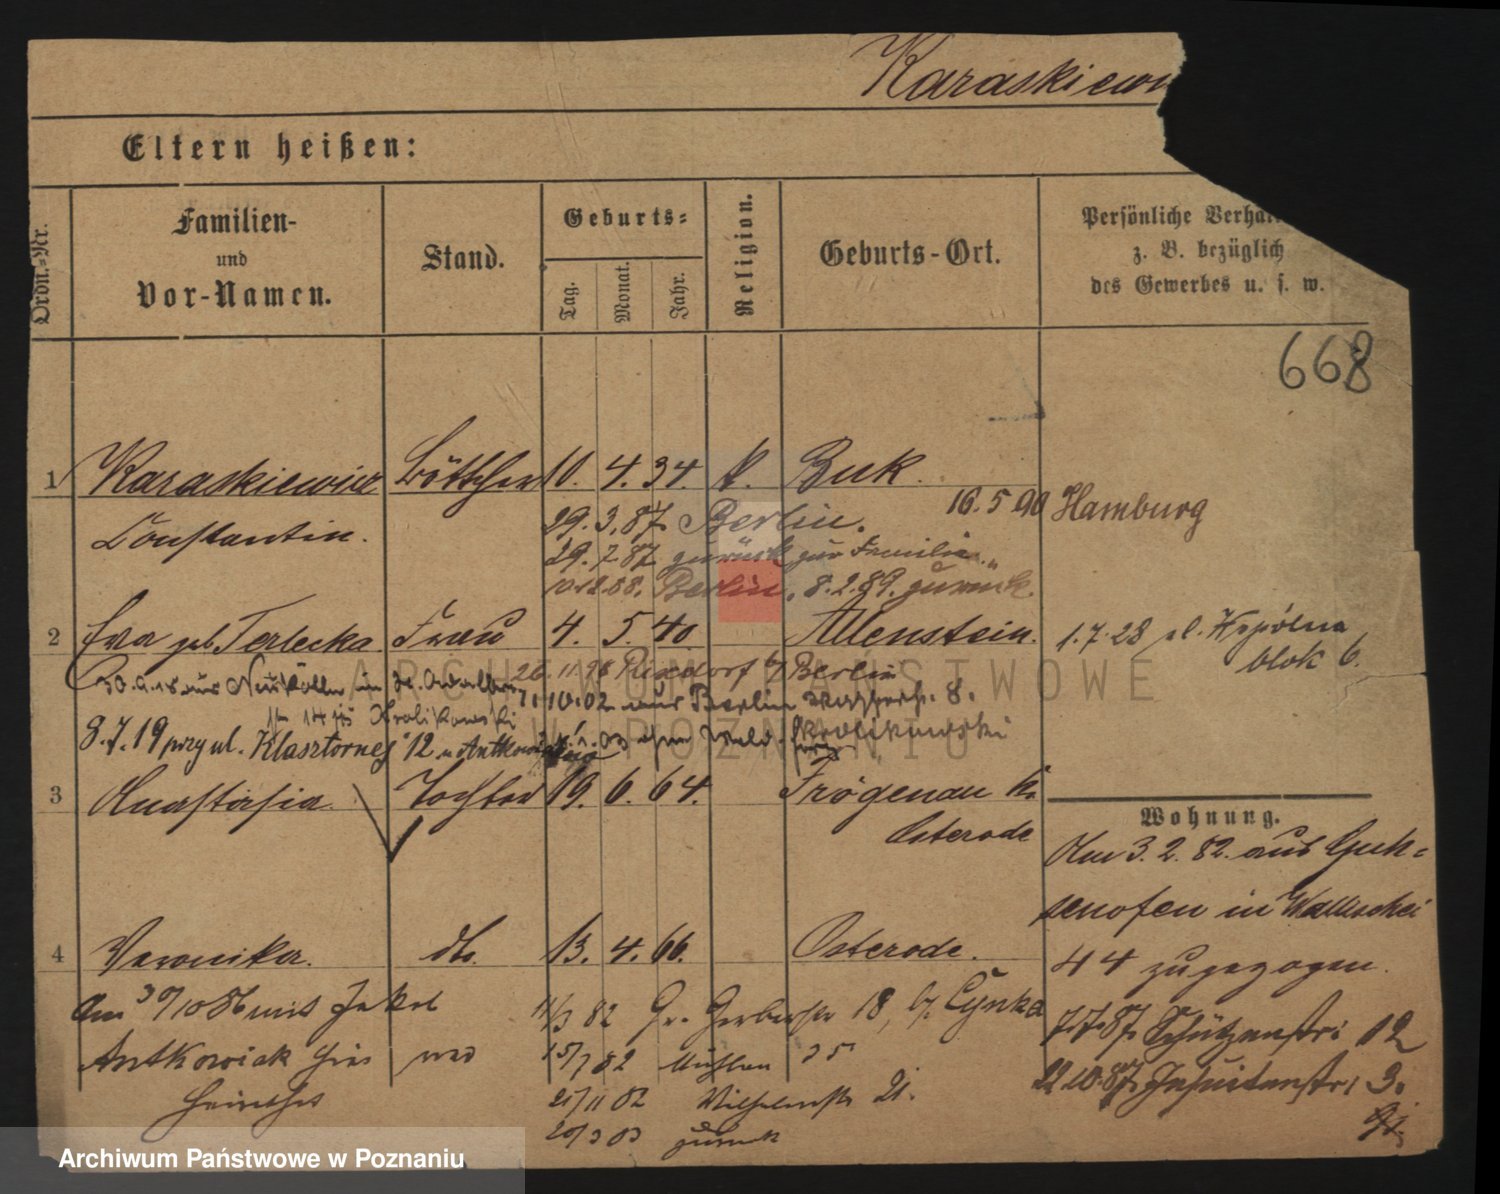 Karaskiew
Eltern heißen:
Ordn.-Nr.
Familien-
und
Vor-Namen.
Stand.
Geburts-
Tag.
Monat.
Jahr.
Religion.
Geburts-Ort.
Persönliche Verhä
z. B. bezüglich
des Gewerbes u. s. w.
668
1 Karaskiewicz Böttcher 10. 4. 34. k. Buk.
16.5.90 Hamburg
Constantin. 29. 3. 87. Berlin.
29. 7. 87 zurück zur Familie.
10.12.88. Berlin. 8. 2. 89. zurück.
2 Eva geb. Terlecka Frau 4. 5. 40. Allenstein.
1.7.28 ul. Wspólna
blok 6.
26.11.96 Rixdorf b/ Berlin
30.9.18 aus Neukölln St. Adalbert
7.10.02 aus Berlin 8.
14 Krolikowski
8.7.19 przy ul. Klasztornej 12 u Antkowiak
Krolikowski
3 Anastasia Tochter 19. 6. 64. Frögenau Kr.
Osterode
Wohnung.
Am 3. 2. 82. aus Guh-
senofen in Wallischei
44 zugezogen.
4 Veronika. dto. 13. 4. 66. Osterode.
Am 30/10 86 mit Jakob
Antkowiak hier
11/3 82 Gr. Gerberstr 18, b/ Cynka
7.7.87. Schützenstr. 12
15/7 82 Mühlen 35
22.10.87. Jesuitenstr. 3.
21/11 82 Wilhelmstr 21.
20/3 83 zurück
Archiwum Państwowe w Poznaniu
ARCHIWUM PAŃSTWOWE
W POZNANIU